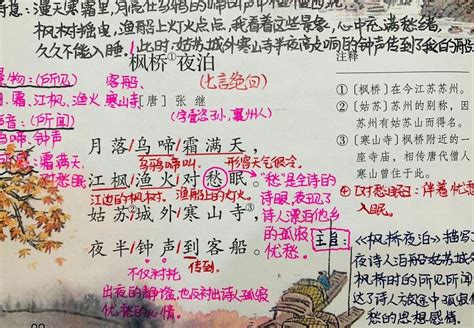 诗意：漫天寒霜里，月亮在乌鸦的啼叫声中
枫树摇曳，渔船上灯火点点，我看着这些景象，心中充满愁绪，
久久不能入睡，此时姑苏城外寒山寺半夜清亮的钟声传到了我的船
枫桥①夜泊
注释
景物：(所见)
客船、
(七言绝句)
霜、江枫、渔火
寒山寺
[唐] 张 继
(字懿孙，襄州人)
声音：(所闻)
乌啼、钟声
霜满天，
对愁眠
月落/乌啼/霜满天，
乌鸦啼叫。
形容天气很冷。
江枫/渔火/对愁眠。
江边的枫树。
渔船上的灯火。
姑苏②城外/寒山寺③，
夜半/钟声/到客船。
传到。
不仅衬托
出夜的静谧，也反衬出诗人孤寂
忧愁的心情。
“愁”是全诗的
诗眼，表现了
诗人漂泊他乡
的孤寂
忧愁。
①［枫桥］在今江苏苏州。
②［姑苏］苏州的别称，因
苏州有姑苏山而得名。
③［寒山寺］枫桥附近的一
座寺庙，相传唐代僧人
寒山曾住于此。
④［对愁眠］：伴着忧愁
入眠。
主旨：
《枫桥夜泊》描写了
夜诗人泊船姑苏城外
枫桥时的所见所闻
达了诗人旅途中孤寂
愁的思想感情。